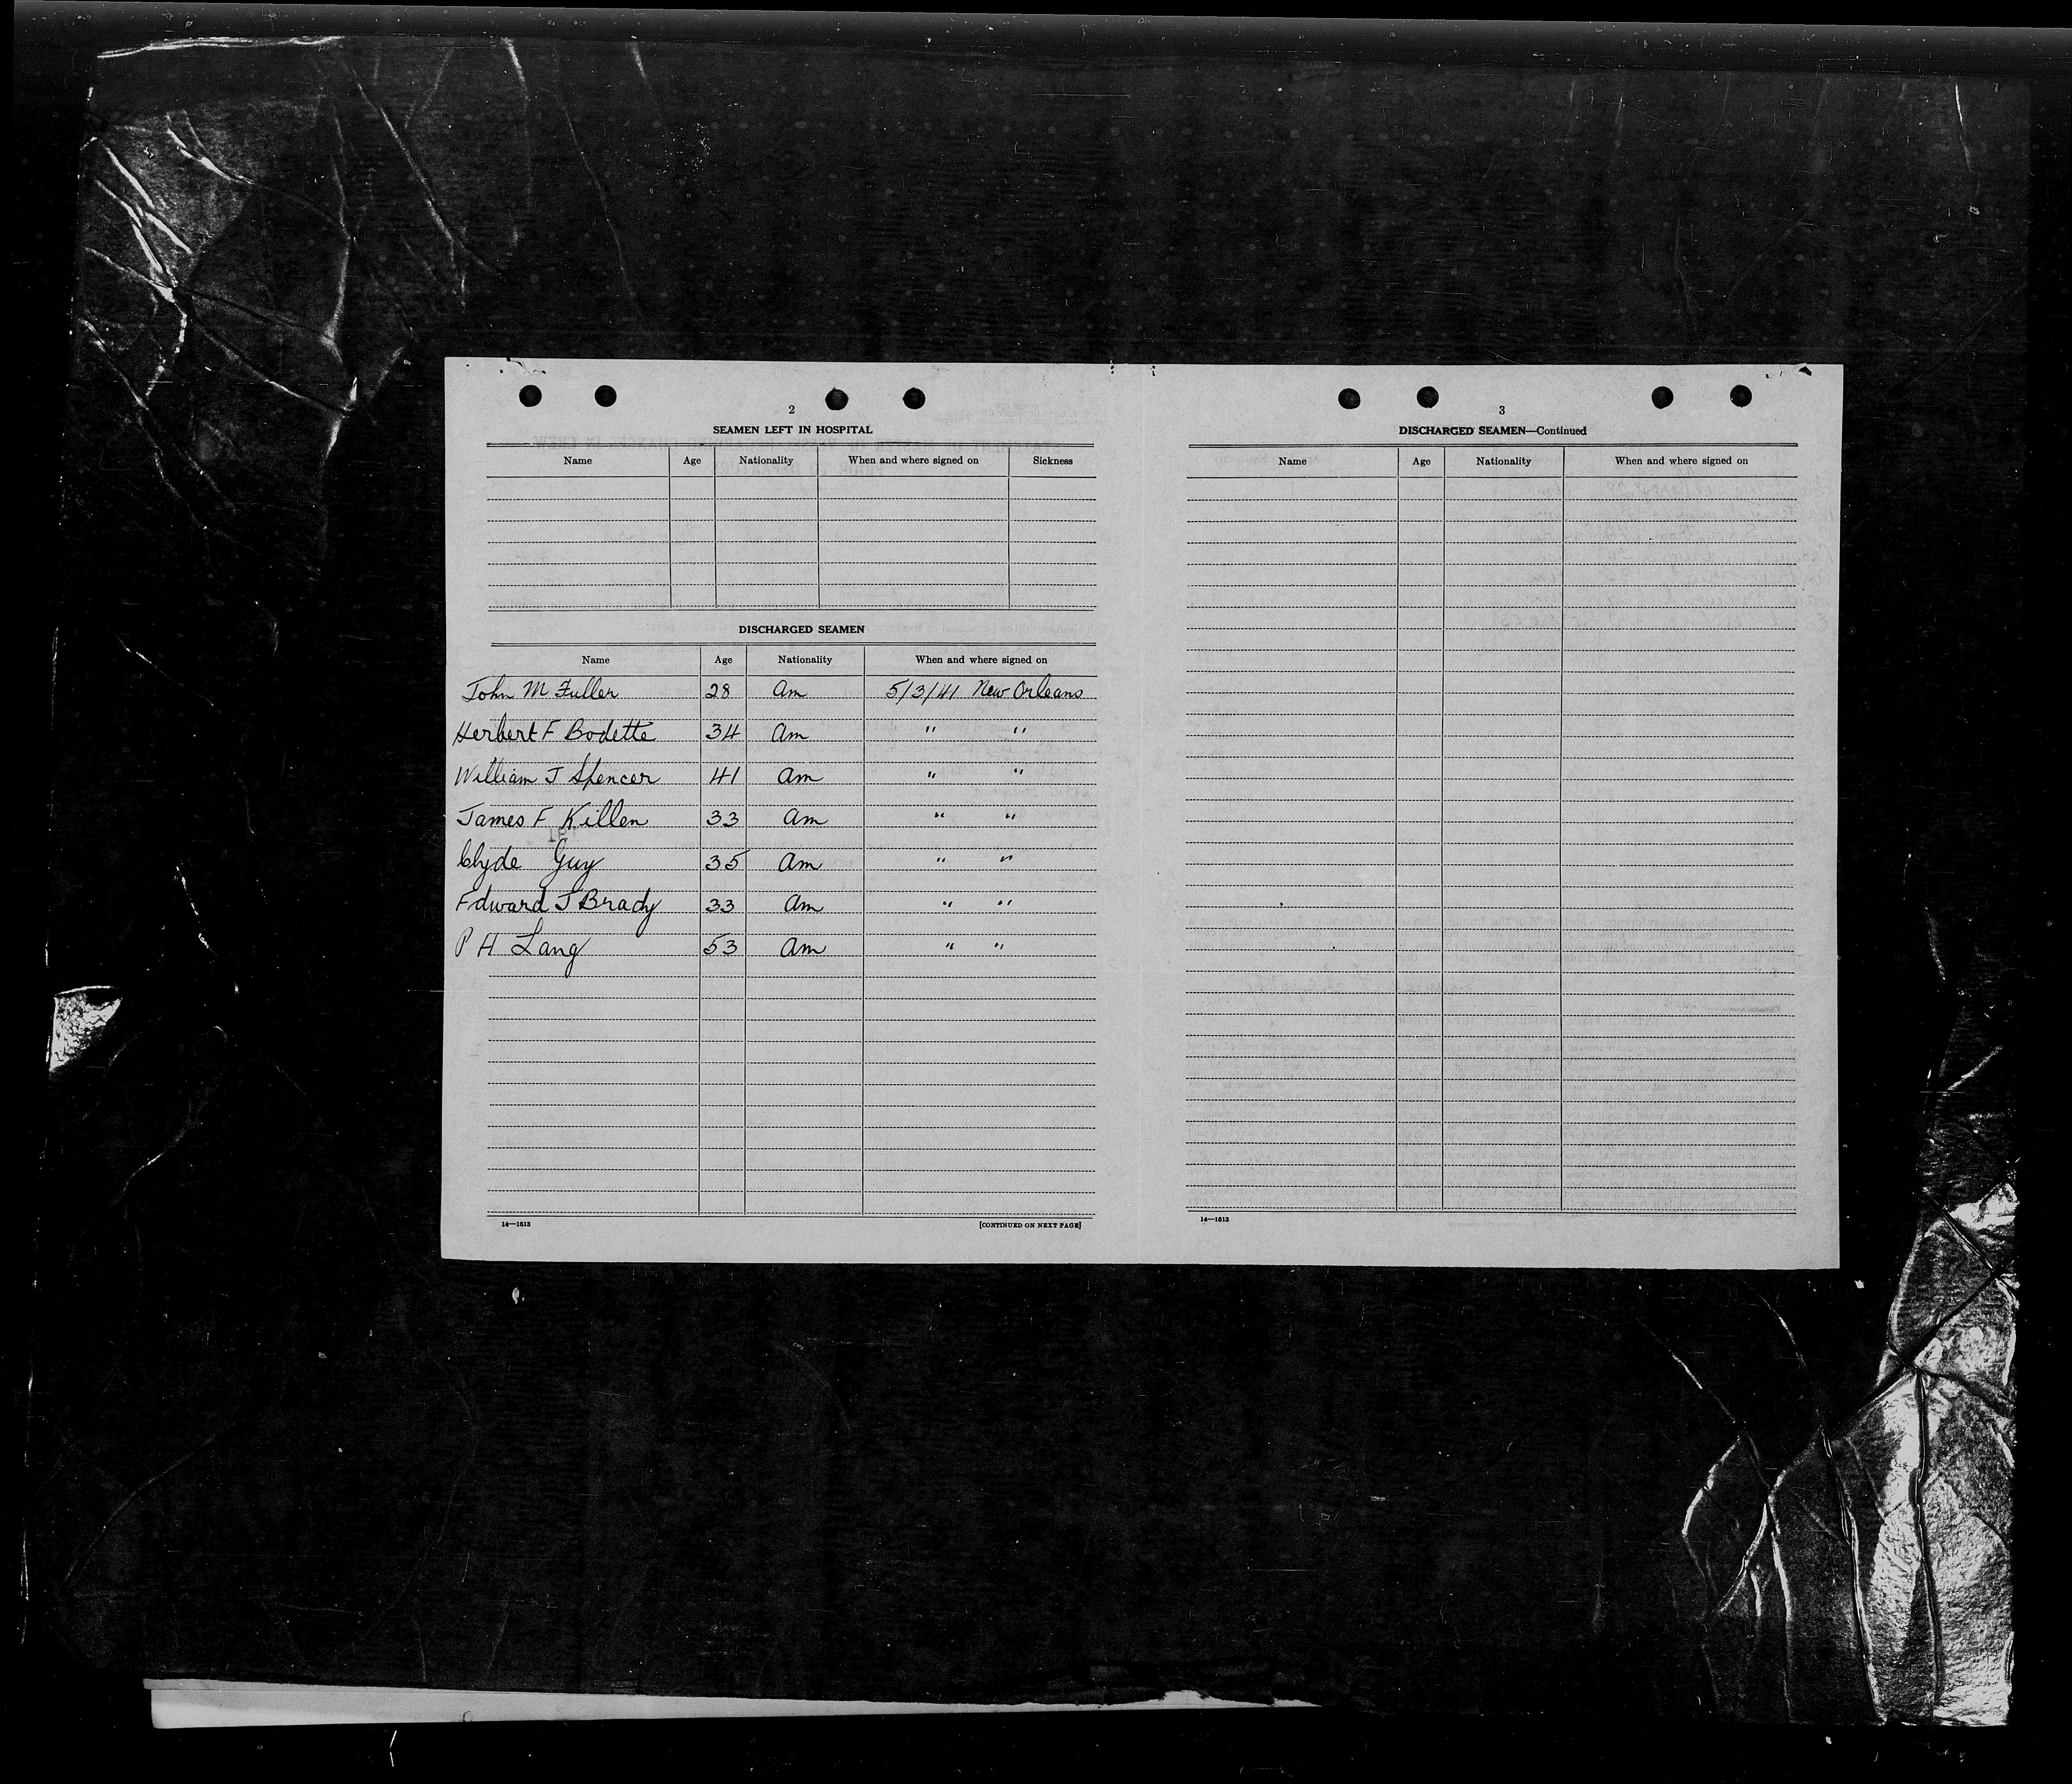 2
SEAMEN LEFT IN HOSPITAL
Name Age Nationality When and where signed on Sickness
DISCHARGED SEAMEN
Name Age Nationality When and where signed on
John M Fuller 28 Am 5/3/41 New Orleans
Herbert F Bodette 34 Am " "
William J Spencer 41 Am " "
James F Killen 33 Am " "
Clyde Guy 35 Am " "
Edward J Brady 33 Am " "
P H Lang 53 Am " "
14—1613 [CONTINUED ON NEXT PAGE]
3
DISCHARGED SEAMEN—Continued
Name Age Nationality When and where signed on
14—1613